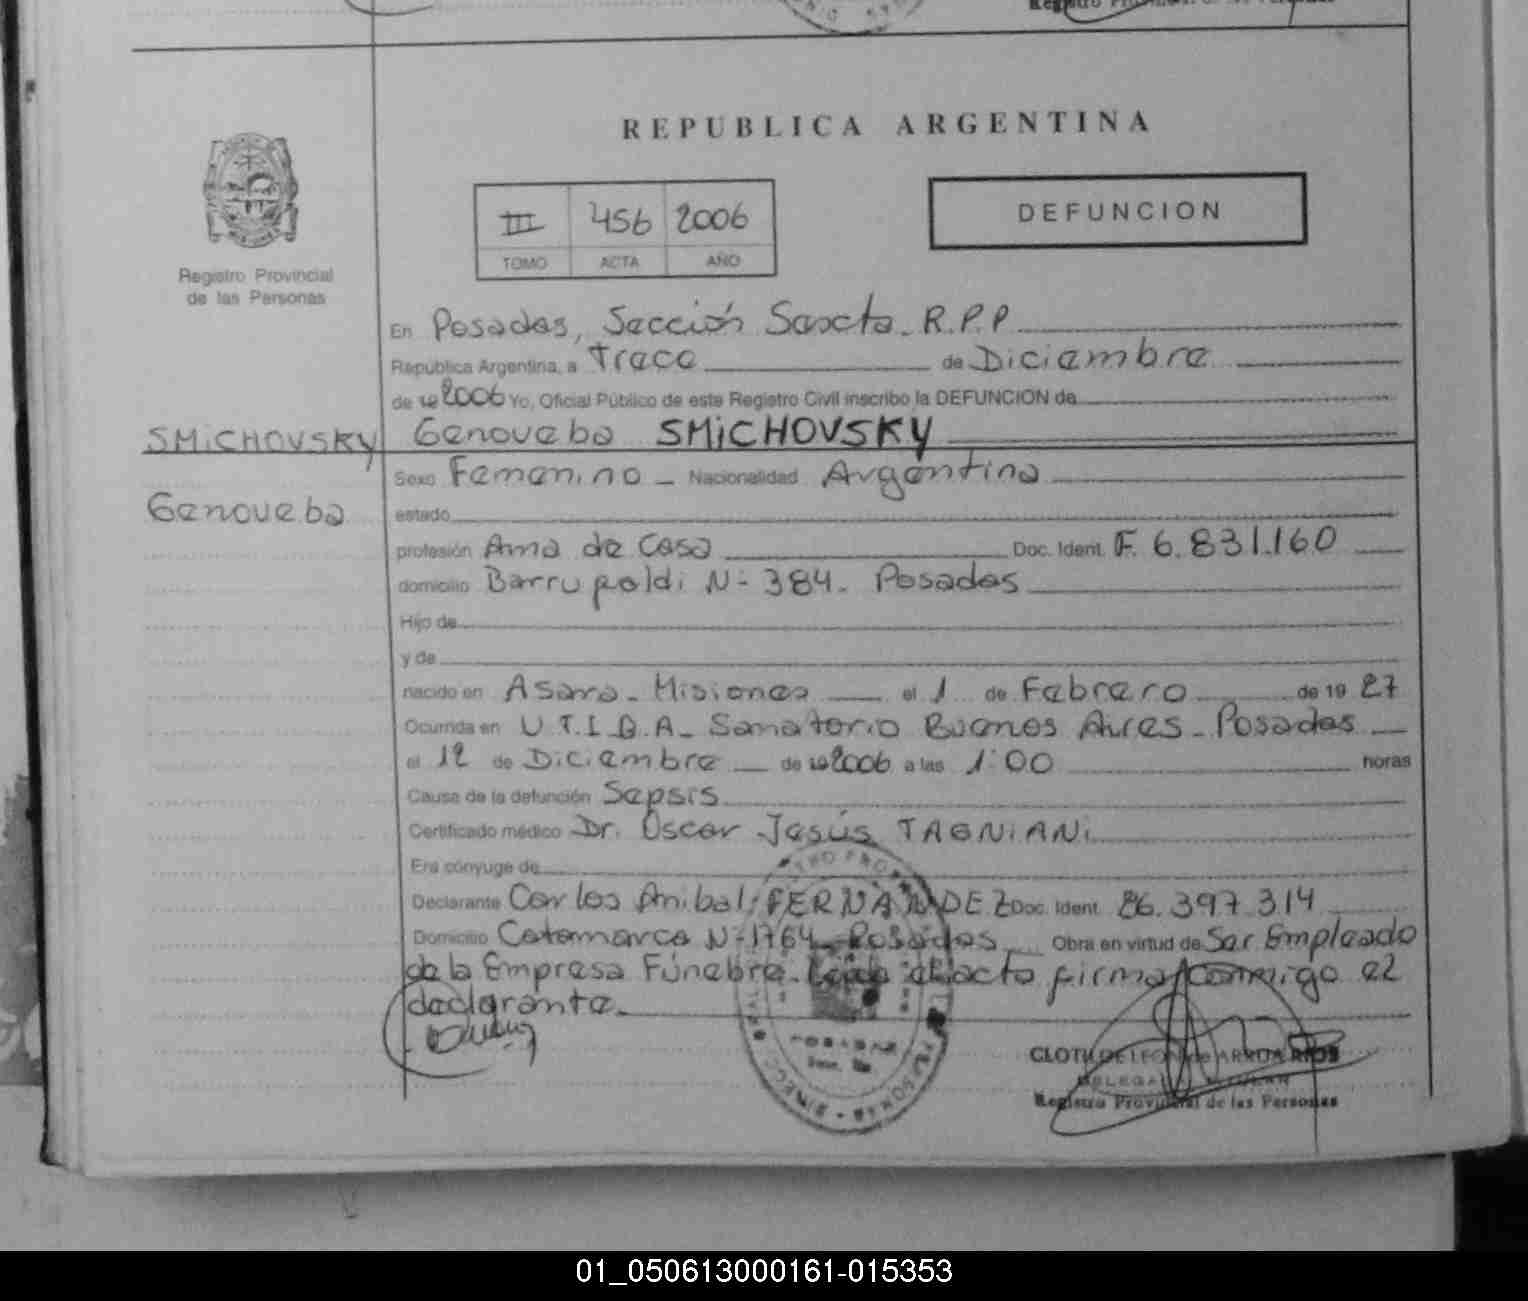 REPUBLICA ARGENTINA
III 456 2006
TOMO ACTA AÑO
DEFUNCION
Registro Provincial
de las Personas
En Posadas, Sección Sexcta. R.P.P
República Argentina, a Trece de Diciembre
de 19 2006 Yo, Oficial Público de este Registro Civil inscribo la DEFUNCION de
SMiCHOVSKY Genoveba SMiCHOVSKY
Sexo Femenino - Nacionalidad Argentina
Genoveba estado
profesión Ama de Casa Doc. Ident. F. 6.831.160
domicilio Barrufaldi N- 384. Posadas
Hijo de
y de
nacido en Asara - Misiones el 1 de Febrero de 19 27
Ocurrida en U.T.I.B.A - Sanatorio Buenos Aires - Posadas
el 12 de Diciembre de 19 2006 a las 1:00 horas
Causa de la defunción Sepsis
Certificado médico Dr. Oscar Jesús TAGNiANi
Era cónyuge de
Declarante Carlos Anibal FERNANDEZ Doc. Ident. 26.397.314
Domicilio Catamarca N-1764 - Posadas Obra en virtud de Ser Empleado
de la Empresa Fúnebre. Leida el acta firma conmigo el
declarante.
POSADAS
CLOTILDE LEON de ARRUA RIOS
DELEGADA TITULAR
Registro Provincial de las Personas
01_050613000161-015353